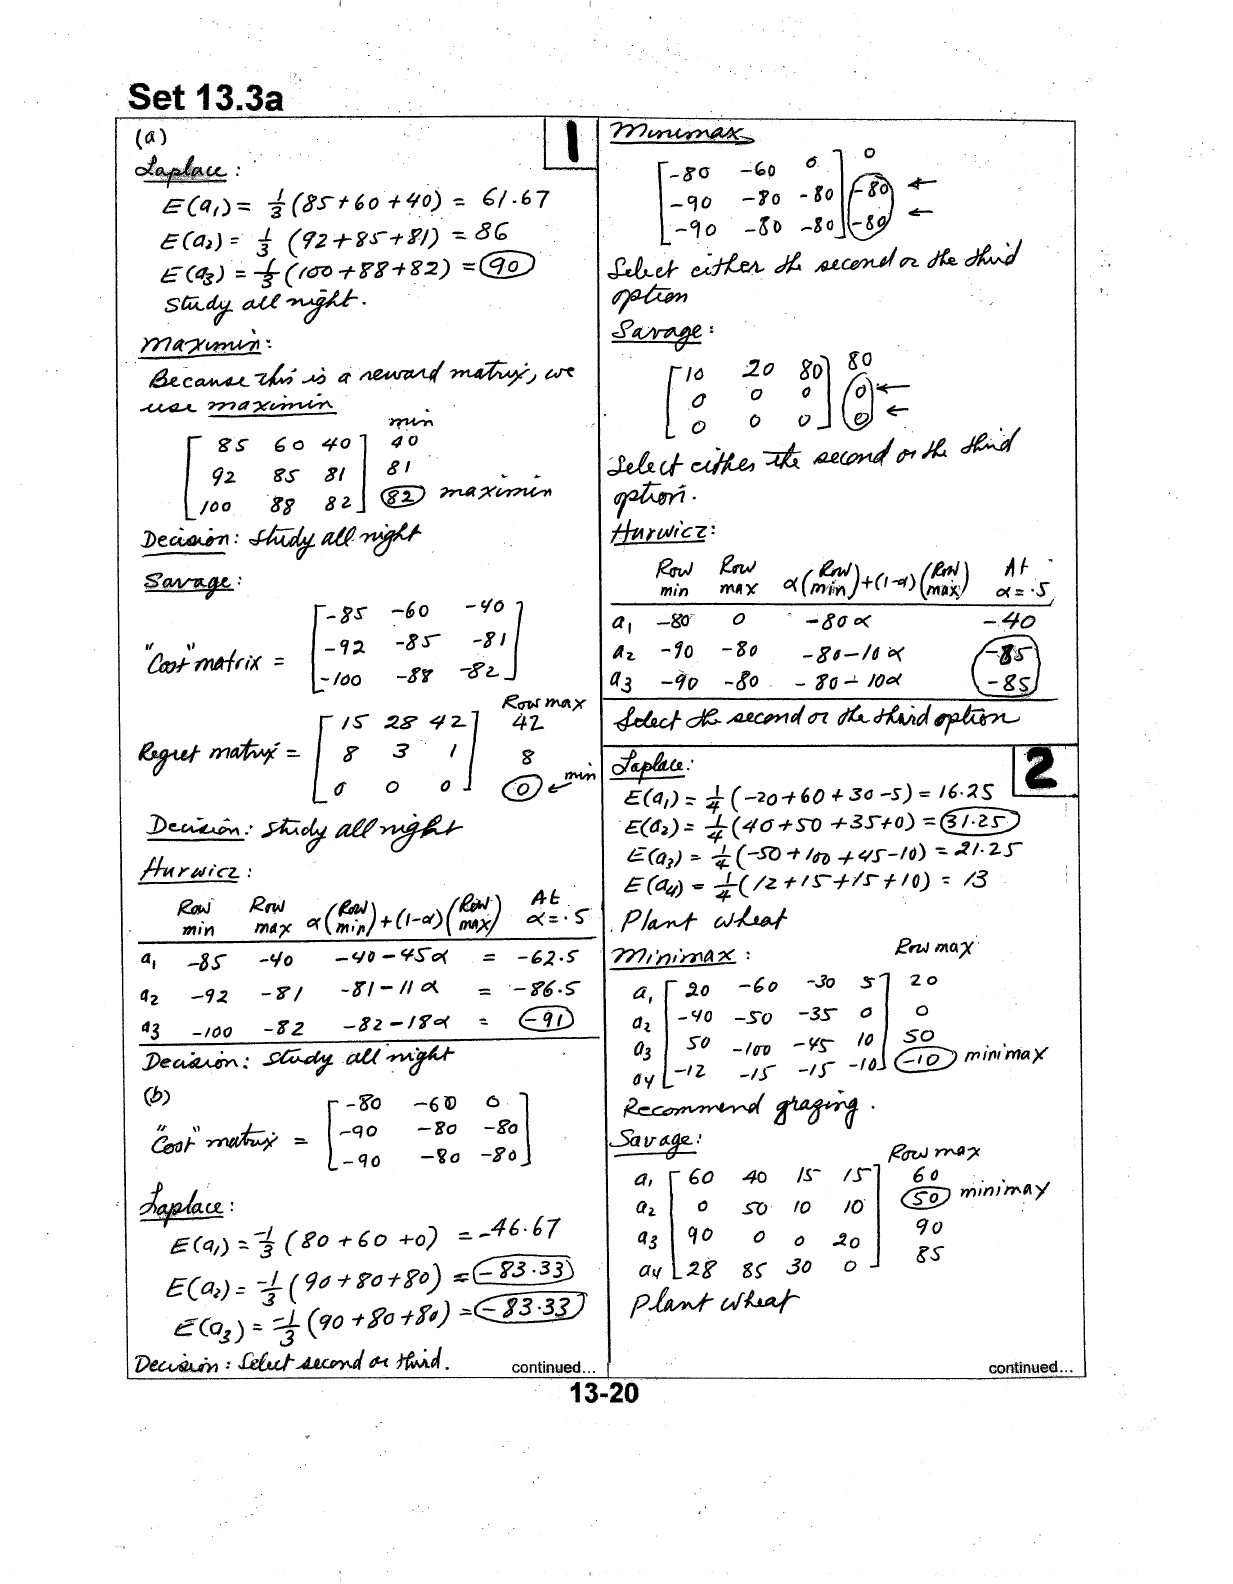 Set 13.3a
(a)
1
Laplace :
E(a₁) = 1/3 (85 + 60 + 40) = 61.67
E(a₂) = 1/3 (92 + 85 + 81) = 86
E(a₃) = 1/3 (100 + 88 + 82) = 90
Study all night.
Maximin :
Because this is a reward matrix, we
use maximin
min
85 60 40 40
92 85 81 81
100 88 82 82 maximin
Decision : study all night
Savage :
"Cost" matrix =
-85 -60 -40
-92 -85 -81
-100 -88 -82
Row max
Regret matrix =
15 28 42 42
8 3 1 8
0 0 0 0 ← min
Decision : study all night
Hurwicz :
Row min Row max α(Row min) + (1-α)(Row max) At α = .5
a₁ -85 -40 -40 - 45α = -62.5
a₂ -92 -81 -81 - 11α = -86.5
a₃ -100 -82 -82 - 18α = -91
Decision : study all night
(b)
"Cost" matrix =
-80 -60 0
-90 -80 -80
-90 -80 -80
Laplace :
E(a₁) = -1/3 (80 + 60 + 0) = -46.67
E(a₂) = -1/3 (90 + 80 + 80) = -83.33
E(a₃) = -1/3 (90 + 80 + 80) = -83.33
Decision : Select second or third.
continued...
Minimax
-80 -60 0 0
-90 -80 -80 -80 ←
-90 -80 -80 -80 ←
Select either the second or the third
option
Savage :
10 20 80 80
0 0 0 0 ←
0 0 0 0 ←
Select either the second or the third
option.
Hurwicz :
Row min Row max α(Row min) + (1-α)(Row max) At α = .5
a₁ -80 0 -80α -40
a₂ -90 -80 -80 - 10α -85
a₃ -90 -80 -80 - 10α -85
Select the second or the third option
2
Laplace :
E(a₁) = 1/4 (-20 + 60 + 30 - 5) = 16.25
E(a₂) = 1/4 (40 + 50 + 35 + 0) = 31.25
E(a₃) = 1/4 (-50 + 100 + 45 - 10) = 21.25
E(a₄) = 1/4 (12 + 15 + 15 + 10) = 13
Plant wheat
Minimax : Row max
a₁ 20 -60 -30 5 20
a₂ -40 -50 -35 0 0
a₃ 50 -100 -45 10 50
a₄ -12 -15 -15 -10 -10 minimax
Recommend grazing.
Savage : Row max
a₁ 60 40 15 15 60
a₂ 0 50 10 10 50 minimax
a₃ 90 0 0 20 90
a₄ 28 85 30 0 85
Plant wheat
continued...
13-20